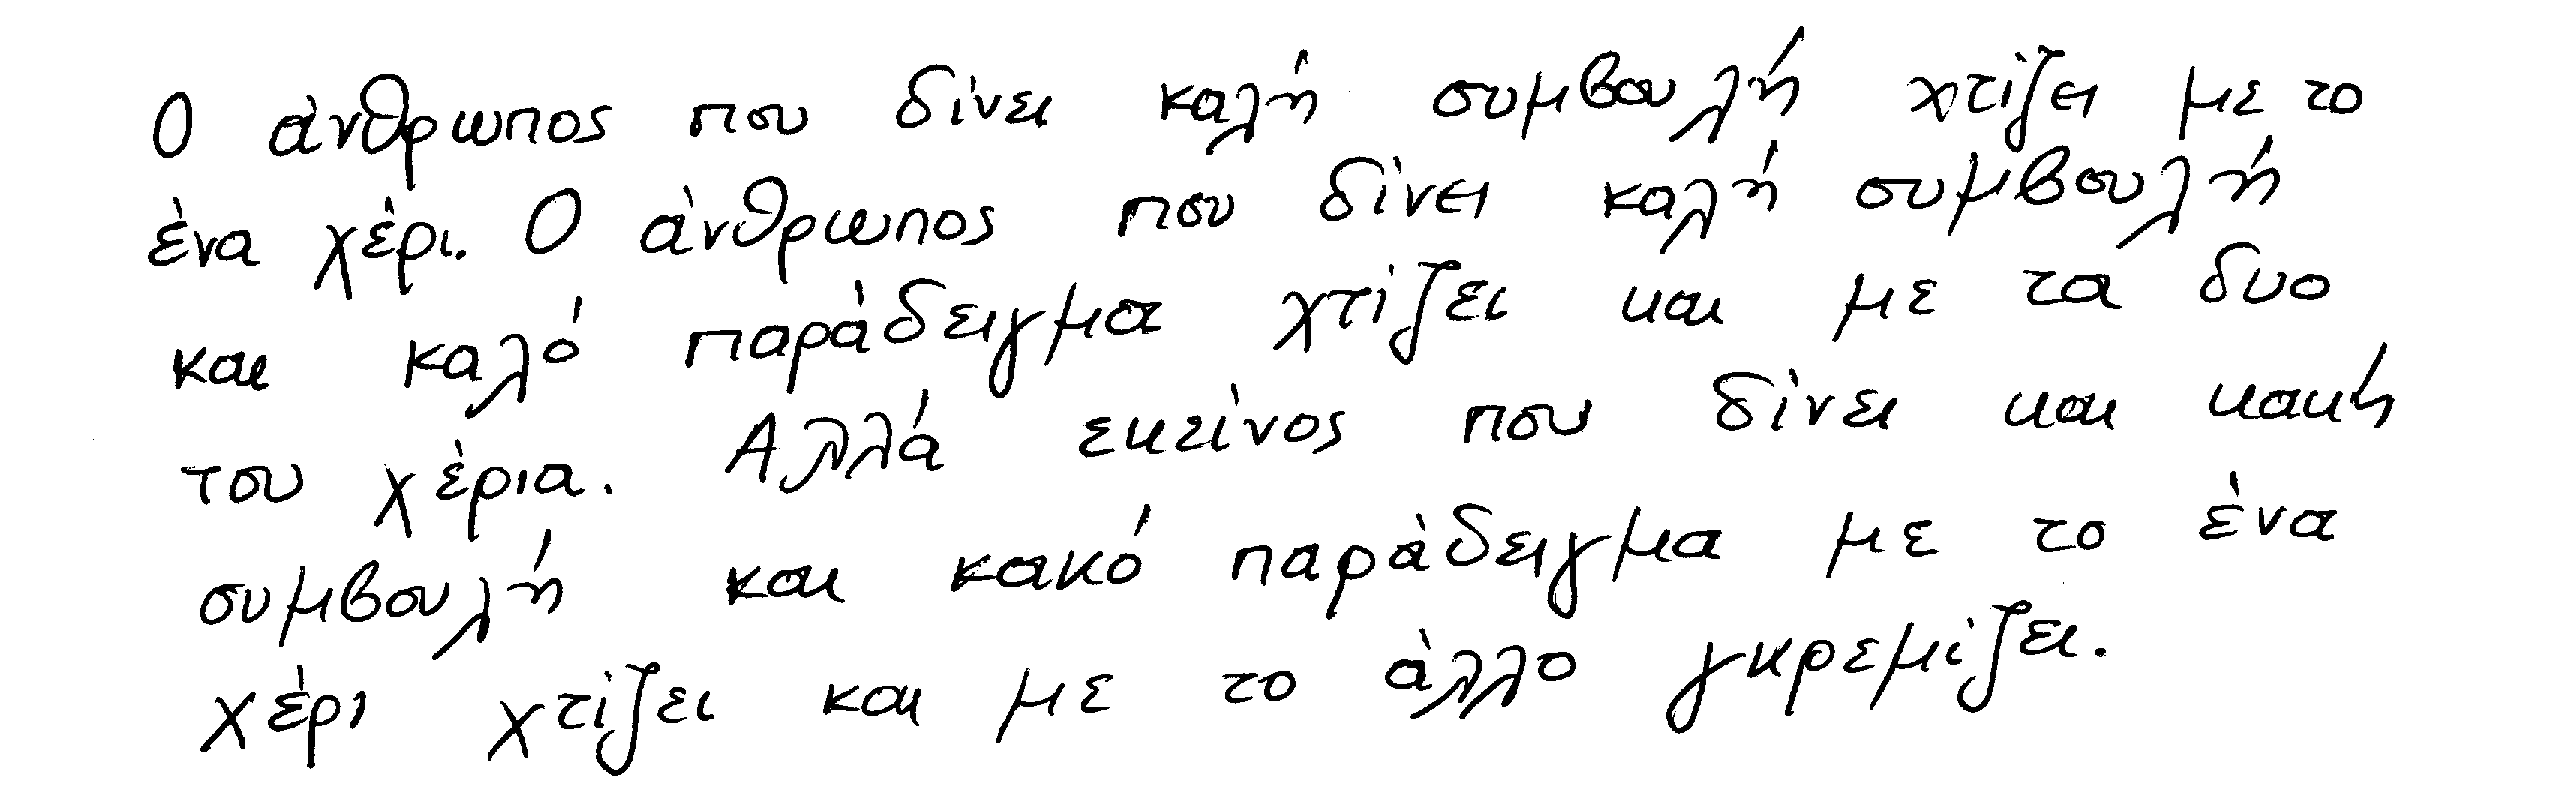 Ο άνθρωπος που δίνει καλή συμβουλή χτίζει με το
ένα χέρι. Ο άνθρωπος που δίνει καλή συμβουλή
και καλό παράδειγμα χτίζει και με τα δυο
του χέρια. Αλλά εκείνος που δίνει και κακή
συμβουλή και κακό παράδειγμα με το ένα
χέρι χτίζει και με το άλλο γκρεμίζει.